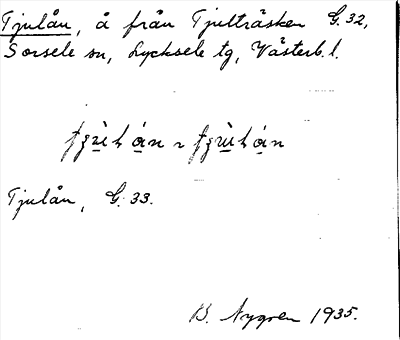 Tjulån, å från Tjulträsken G. 32,
Sorsele sn, Lycksele tg, Västerb. l.
Tjulån, G. 33.
B. Nygren 1935.